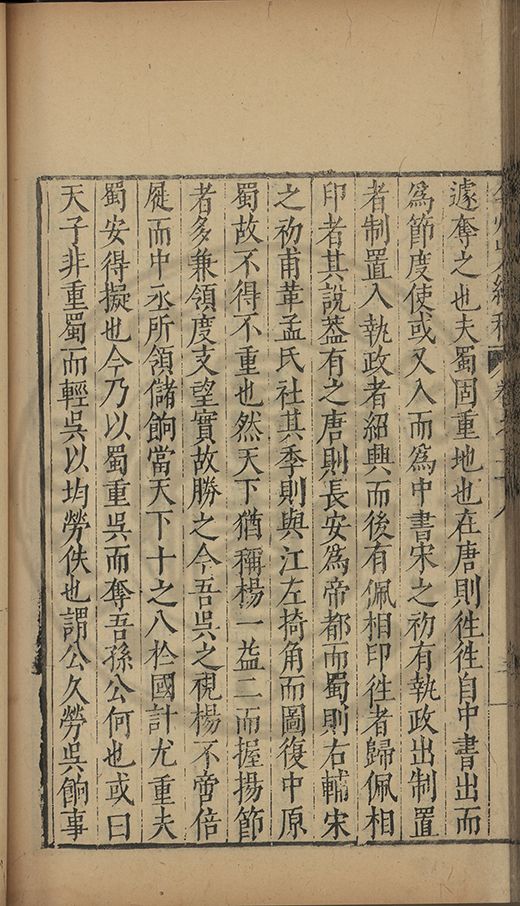 遽奪之也夫蜀固重地也在唐則徃徃自中書出而
爲節度使或又入而爲中書宋之初有執政出制置
者制置入執政者紹興而後有佩相印徃者歸佩相
印者其說葢有之唐則長安爲帝都而蜀則右輔宋
之初甫革孟氏社其季則與江左掎角而圖復中原
蜀故不得不重也然天下猶稱楊一益二而握揚節
者多兼領度支望實故勝之今吾吳之視楊不啻倍
屣而中丞所領儲餉當天下十之八於國計尤重夫
蜀安得擬也今乃以蜀重吳而奪吾孫公何也或曰
天子非重蜀而輕吳以均勞佚也謂公久勞吳餉事